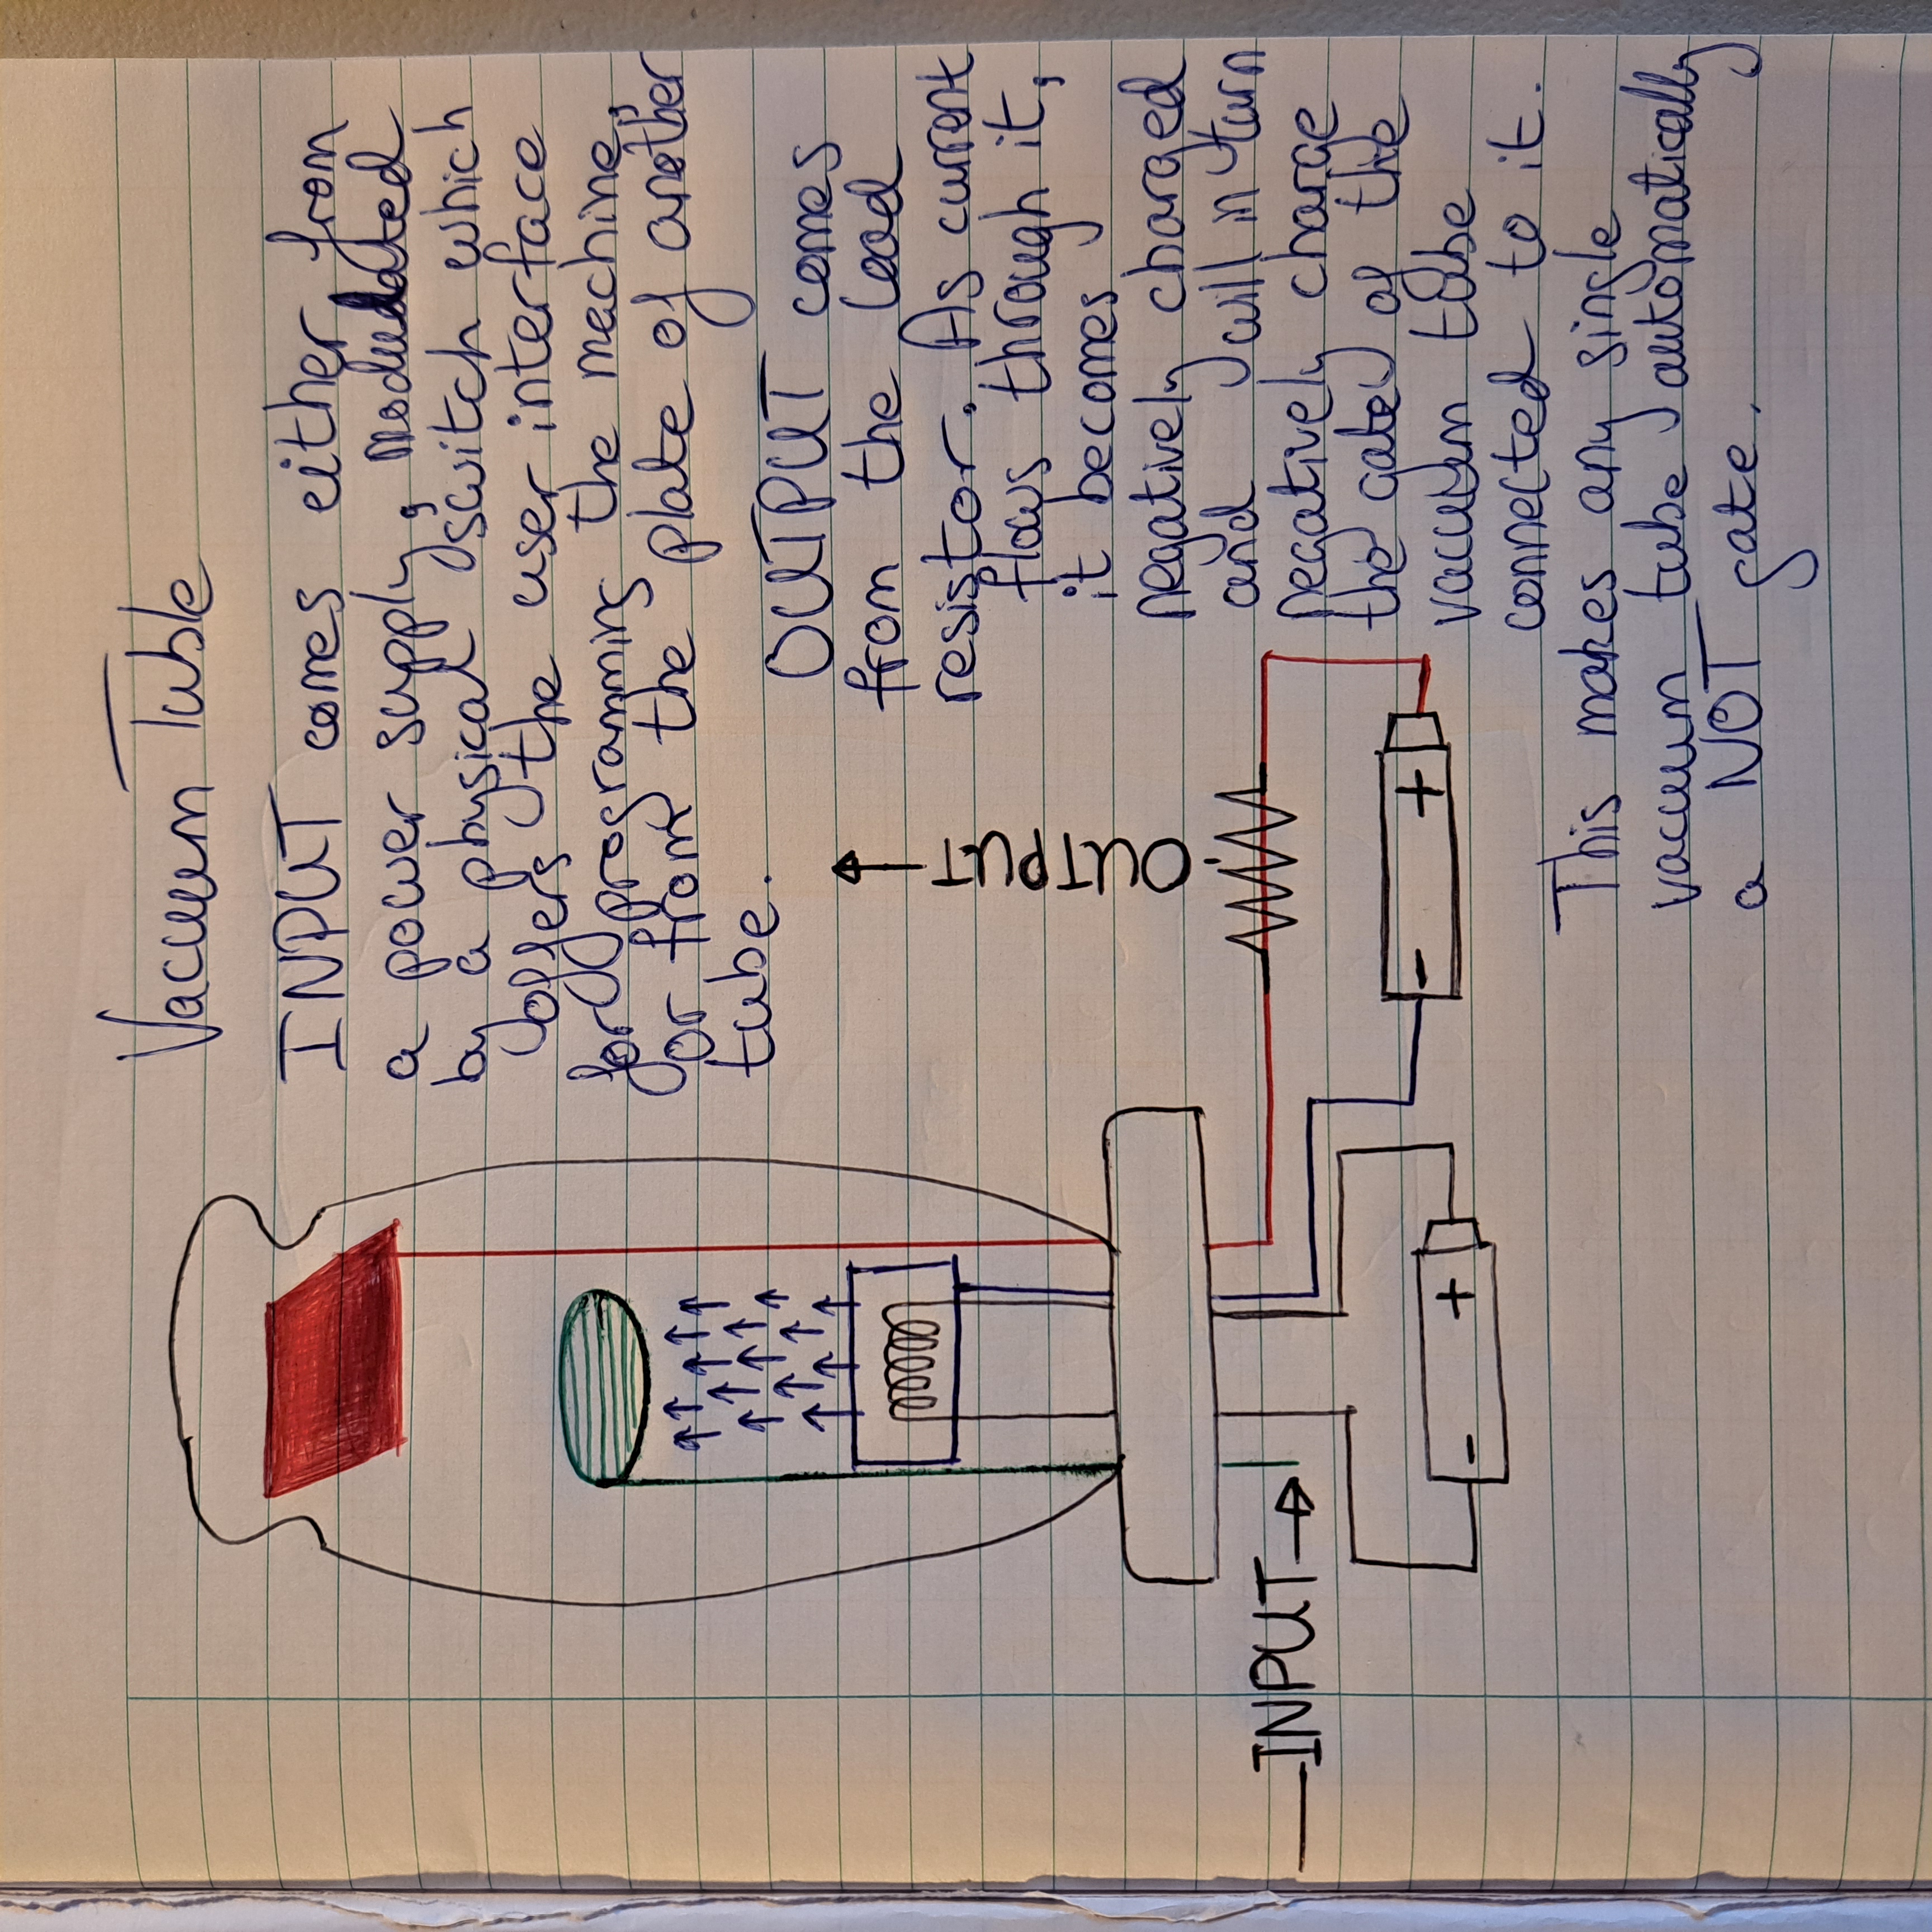 Vacuum Tube
INPUT comes either from
a power supply, modulated
by a physical switch which
offers the user interface
for programming the machine,
or from the plate of another
tube.
OUTPUT comes
from the load
resistor. As current
flows through it,
it becomes
negatively charged
and will in turn
negatively charge
the gate of the
vacuum tube
connected to it.
This makes any single
vacuum tube automatically
a NOT gate.
OUTPUT
INPUT
- +
- +